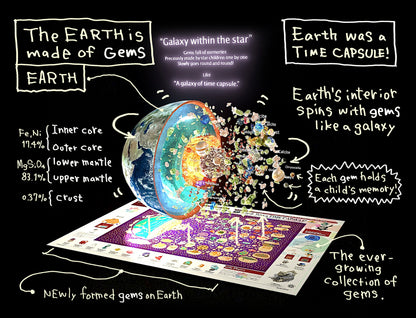 The EARTH is
made of Gems
EARTH
"Galaxy within the star"
Gems full of memories
Preciously made by star children one by one
Slowly goes round and round!
Like
"A galaxy of time capsule."
Earth was a
TIME CAPSULE!
Earth's interior
spins with gems
like a galaxy
Fe,Ni;
17.4%
Inner core
Outer core
MgSiO3
83.1%
lower mantle
upper mantle
0.37%
crust
Each gem holds
a child's memory
The ever-
growing
collection of
gems.
Newly formed gems on Earth